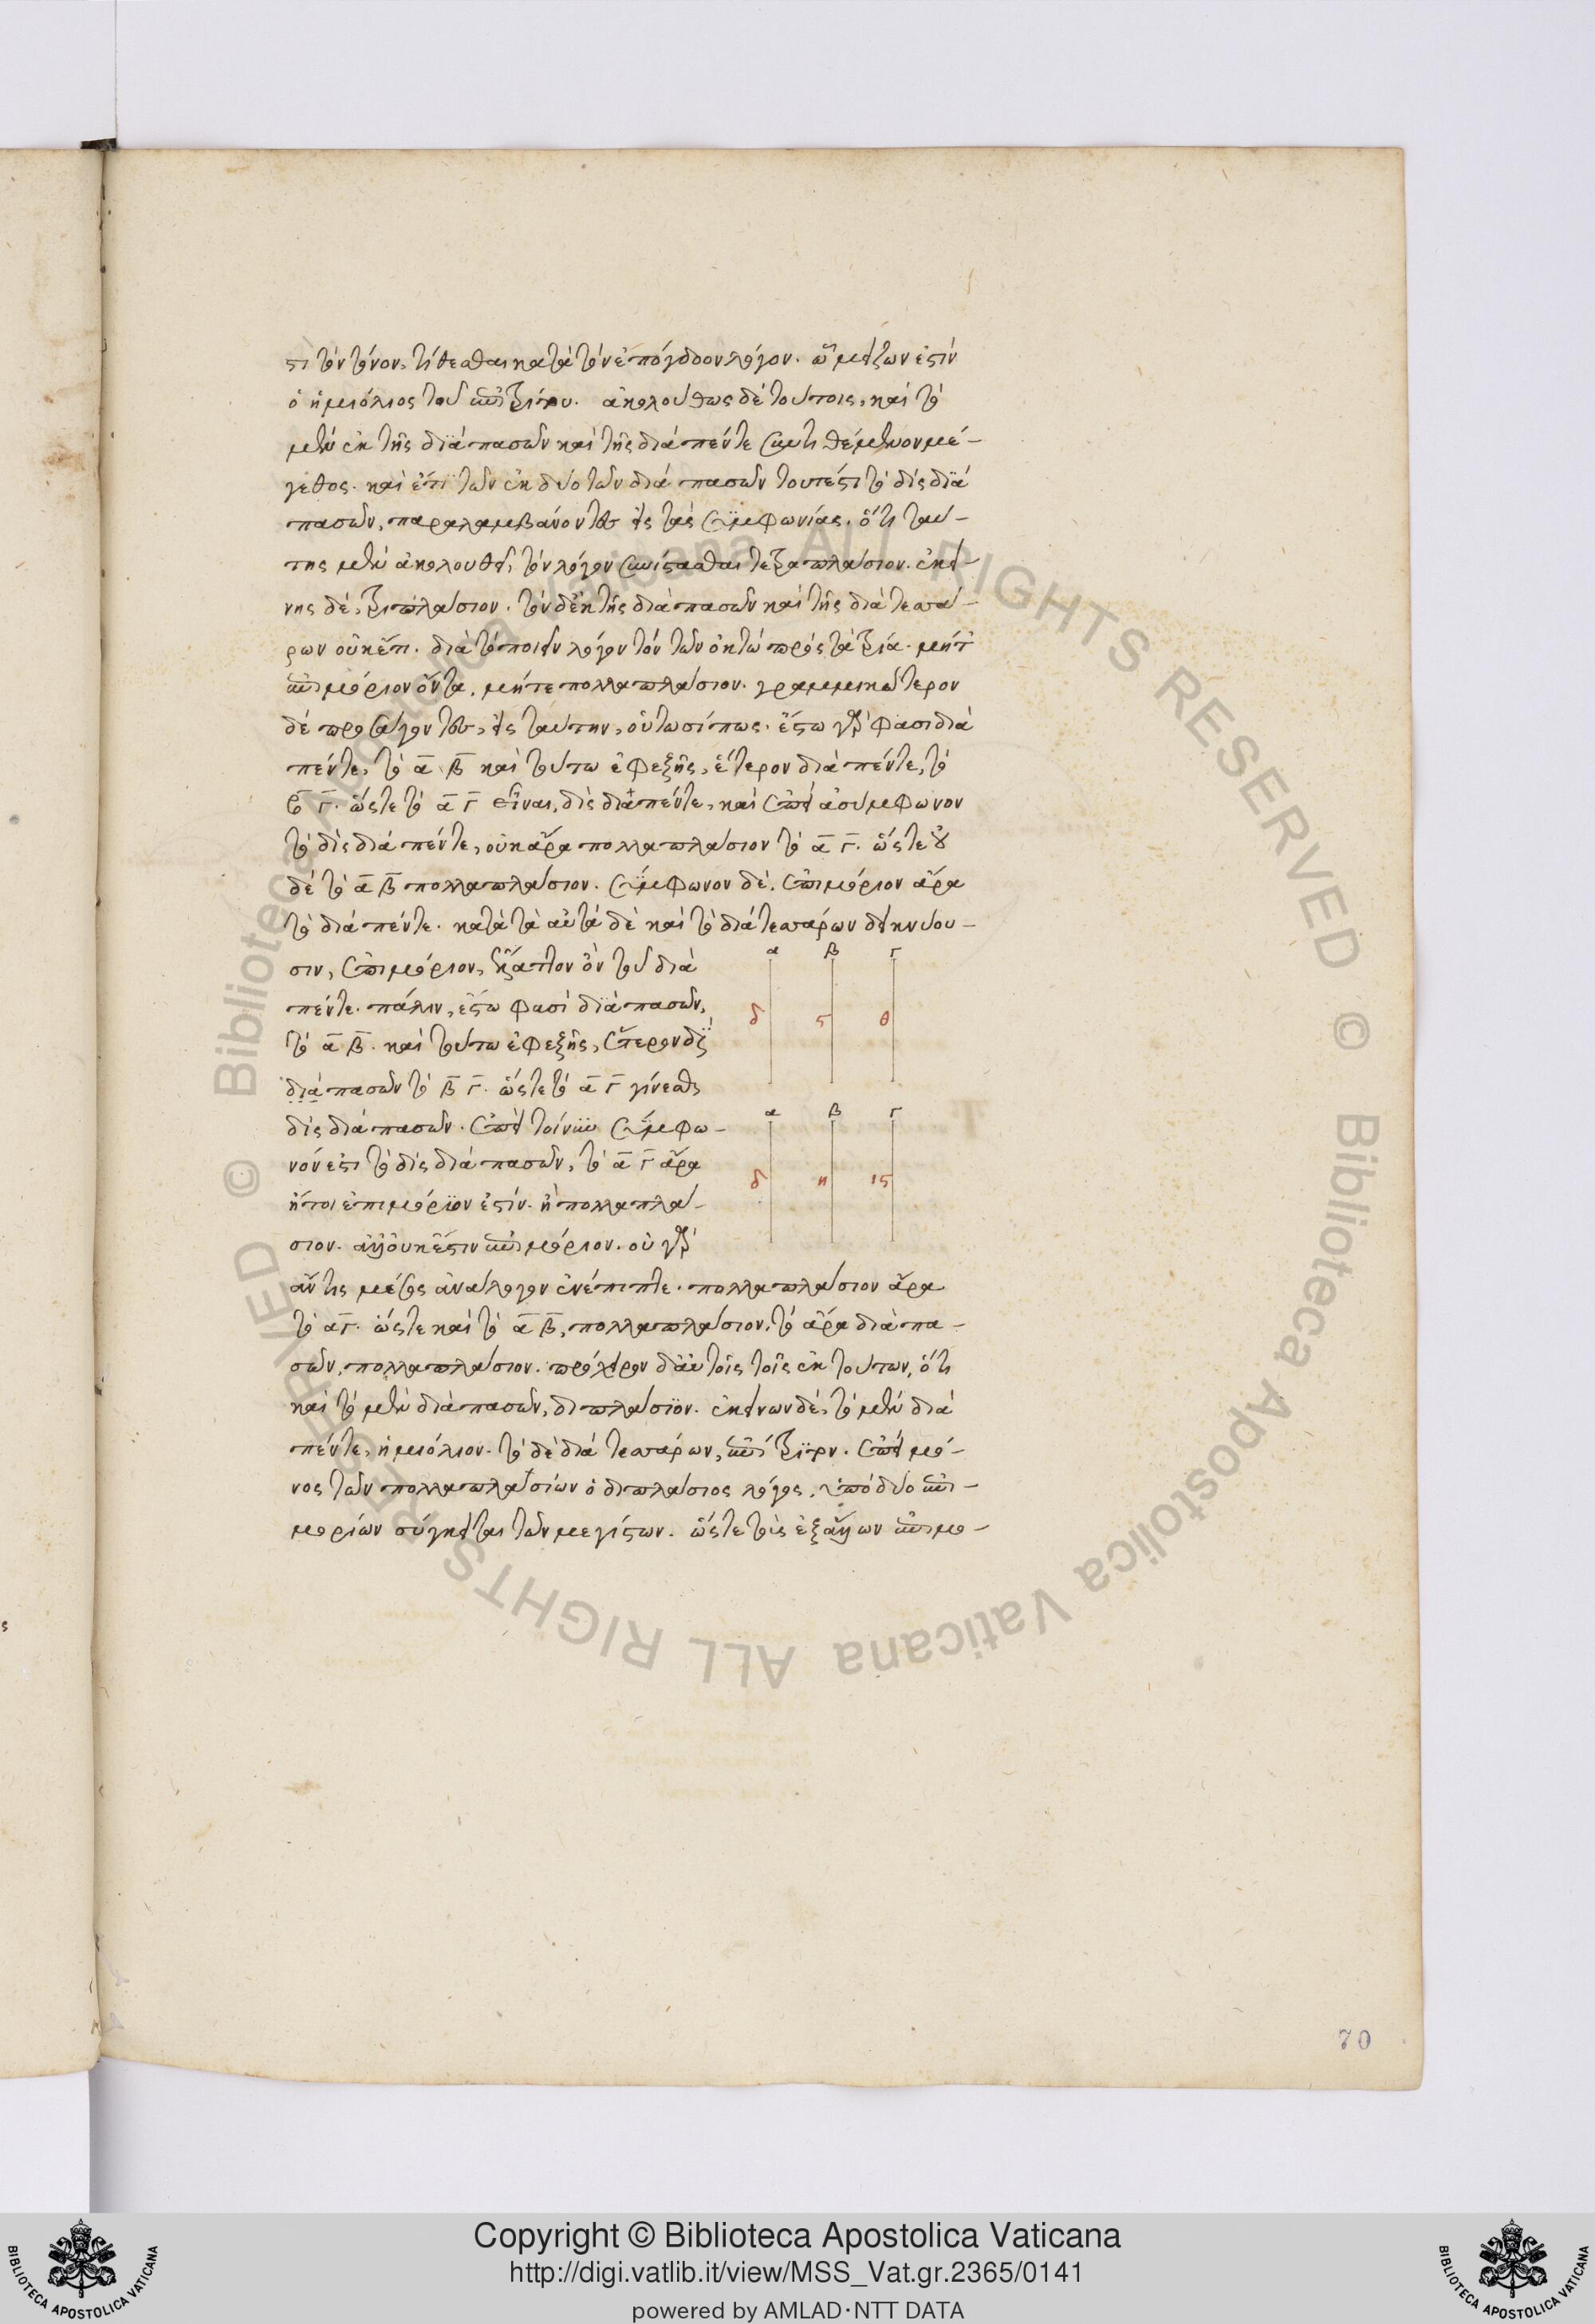 στι τὸν τόνον, τίθεσθαι κατὰ τὸν ἐπόγδοον λόγον. ᾧ μείζων ἐστὶν
ὁ ἡμιόλιος τοῦ ἐπιτρίτου. ἀκολούθως δὲ τούτοις, καὶ τὸ
μὲν ἐκ τῆς διὰ πασῶν καὶ τῆς διὰ πέντε συντιθέμενον μέ-
γεθος. καὶ ἔτι τῶν ἐκ δύο τῶν διὰ πασῶν τουτέστι τὸ δὶς διὰ
πασῶν, παραλαμβάνονται εἰς τὰς συμφωνίας. ὅτι ταύ-
της μὲν ἀκολουθεῖ, τὸν λόγον συνίστασθαι τετραπλάσιον. ἐκεί-
νης δὲ, τριπλάσιον. τὸν δ' ἐκ τῆς διὰ πασῶν καὶ τῆς διὰ τεσσά-
ρων οὐκέτι. διὰ τὸ ποιεῖν λόγον τὸν τῶν ὀκτὼ πρὸς τὰ τρία. μήτε
ἐπιμόριον ὄντα, μήτε πολλαπλάσιον. γραμμικώτερον
δὲ προσάγονται, εἰς ταύτην, οὑτωσί πως. ἔστω γὰρ φασὶ διὰ
πέντε, τὸ α β καὶ τούτω ἐφεξῆς, ἕτερον διὰ πέντε, τὸ
β γ. ὥστε τὸ α γ εἶναι, δὶς διὰ πέντε, καὶ ἐπεὶ ἀσύμφωνον
τὸ δὶς διὰ πέντε, οὐκ ἄρα πολλαπλάσιον τὸ α γ. ὥστε οὐ
δὲ τὸ α β πολλαπλάσιον. σύμφωνον δέ. ἐπιμόριον ἄρα
τὸ διὰ πέντε. κατὰ τὰ αὐτὰ δὲ καὶ τὸ διὰ τεσσάρων δεικνύου-
σιν, ἐπιμόριον, ἔλαττον ὂν τοῦ διὰ
πέντε. πάλιν, ἔστω φασὶ διὰ πασῶν,
τὸ α β. καὶ τούτω ἐφεξῆς, ἕτερον
διὰ πασῶν τὸ β γ. ὥστε τὸ α γ γίνεσθαι
δὶς διὰ πασῶν. ἐπεὶ τοίνυν σύμφω-
νόν ἐστι τὸ δὶς διὰ πασῶν, τὸ α γ ἄρα
ἤτοι ἐπιμόριον ἐστίν. ἢ πολλαπλά-
σιον. ἀλλ' οὐκ ἔστιν ἐπιμόριον. οὐ γὰρ
ἄν τις μέσος ἀνάλογον ἐνέπιπτε. πολλαπλάσιον ἄρα
τὸ αγ. ὥστε καὶ τὸ α β, πολλαπλάσιον. τὸ ἄρα διὰ πα-
σῶν, πολλαπλάσιον. πρόχειρον δ' αὐτοῖς τοῖς ἐκ τούτων, ὅτι
καὶ τὸ μὲν διὰ πασῶν, διπλάσιον. ἐκείνων δὲ, τὸ μὲν διὰ
πέντε, ἡμιόλιον. τὸ δὲ διὰ τεσσάρων, ἐπίτριτον. ἐπεὶ μό-
νος τῶν πολλαπλασίων ὁ διπλάσιος λόγος, ὑπὸ δύο ἐπι-
μορίων σύγκειται τῶν μεγίστων. ὥστε τοῖς ἐξ ἄλλων ἐπιμο-
α β γ
δ ς θ
α β γ
δ η ις
70
Copyright © Biblioteca Apostolica Vaticana
http://digi.vatlib.it/view/MSS_Vat.gr.2365/0141
powered by AMLAD·NTT DATA
BIBLIOTECA APOSTOLICA VATICANA
BIBLIOTECA APOSTOLICA VATICANA
© Biblioteca Apostolica Vaticana ALL RIGHTS RESERVED © Biblioteca Apostolica Vaticana ALL RIGHTS RESERVED